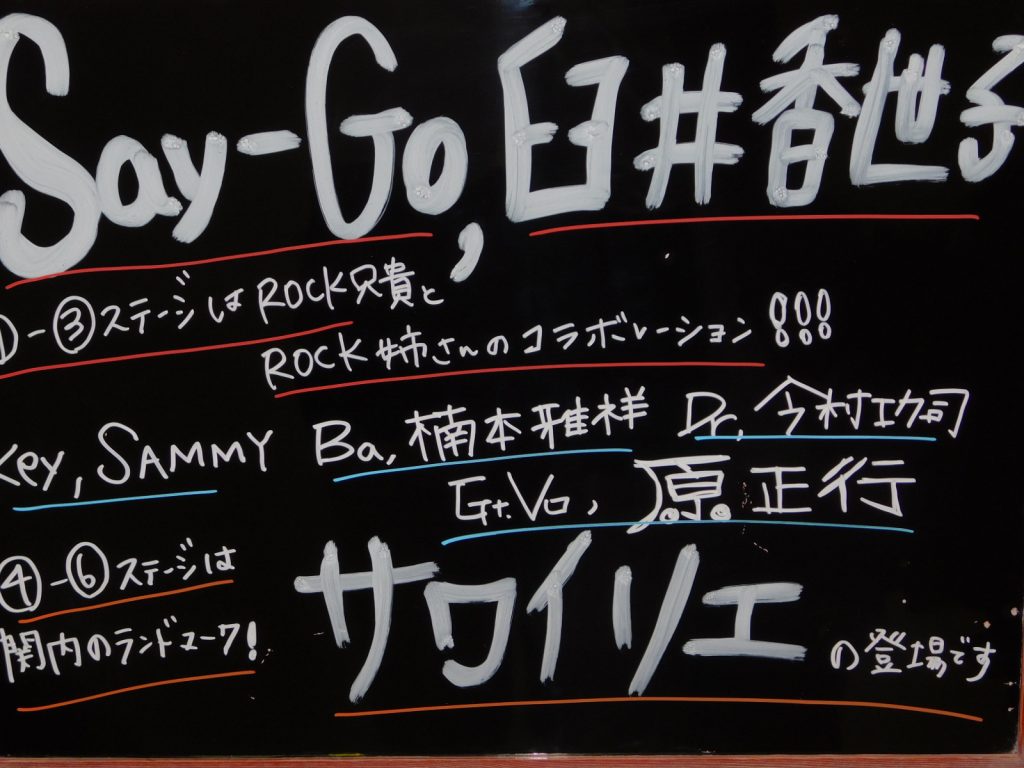 Say-Go, 臼井香世子
①-③ステージはROCK兄貴と
ROCK姉さんのコラボレーション!!!
Key, SAMMY Ba, 楠本雅祥 Dr, 今村功司
Gt.Vo, 原 正行
④-⑥ステージは
関内のランドマーク!
サワイリエの登場です